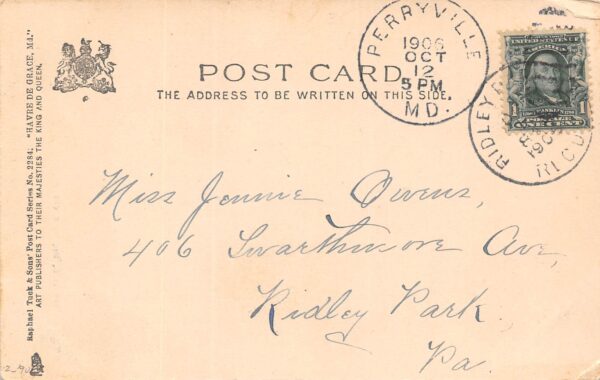 Raphael Tuck & Sons' Post Card Series No. 2284. "HAVRE DE GRACE, Md."
ART PUBLISHERS TO THEIR MAJESTIES THE KING AND QUEEN.
POST CARD.
THE ADDRESS TO BE WRITTEN ON THIS SIDE.
PERRYVILLE
1906
OCT
12
5 PM
MD.
UNITED STATES OF
AMERICA
FRANKLIN
1 1
POSTAGE
ONE CENT
RIDLEY
Miss Jennie Owens,
406 Swarthmore Ave,
Ridley Park,
Pa.